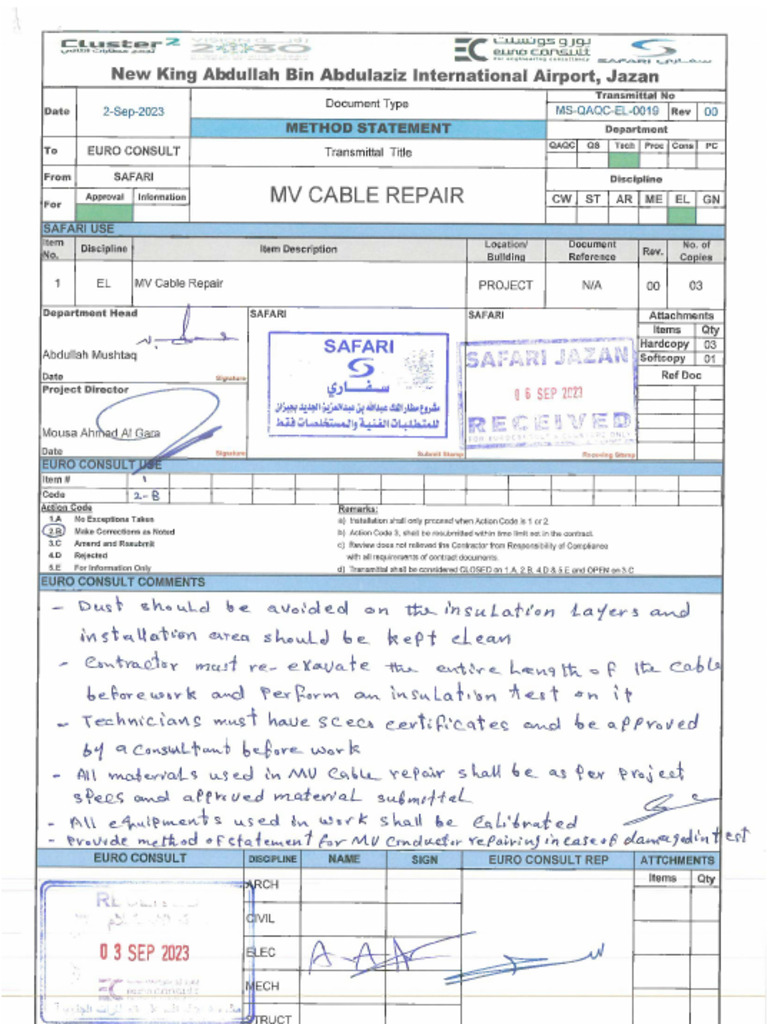 Cluster 2
VISION رؤية
2030
EC يورو كونسلت
euro consult
For engineering consultancy
SAFARI سفاري
New King Abdullah Bin Abdulaziz International Airport, Jazan
Date 2-Sep-2023
Document Type
METHOD STATEMENT
Transmittal No
MS-QAQC-EL-0019 Rev 00
To EURO CONSULT
Transmittal Title
Department
QAQC QS Tech Proc Cons PC
From SAFARI
MV CABLE REPAIR
Discipline
For Approval Information
CW ST AR ME EL GN
SAFARI USE
Item No. Discipline Item Description Location/ Building Document Reference Rev. No. of Copies
1 EL MV Cable Repair PROJECT N/A 00 03
Department Head
SAFARI
SAFARI
Attachments
Items Qty
Hardcopy 03
Softcopy 01
Ref Doc
Abdullah Mushtaq
Date Signature
Project Director
Mousa Ahmad Al Gara
Date Signature
SAFARI
سفاري
مشروع مطار الملك عبدالله بن عبدالعزيز الجديد بجيزان
للمتطلبات الفنية والمستخلصات فقط
Submit Stamp
SAFARI JAZAN
06 SEP 2023
RECEIVED
Receiving Stamp
EURO CONSULT USE
Item # 1
Code 2-B
Action Code
1.A No Exceptions Taken
2.B Make Corrections as Noted
3.C Amend and Resubmit
4.D Rejected
5.E For Information Only
Remarks:
a) Installation shall only proceed when Action Code is 1 or 2.
b) Action Code 3, shall be resubmitted within time limit set in the contract.
c) Review does not relieved the Contractor from Responsibility of Compliance
with all requirements of contract documents.
d) Transmittal shall be considered CLOSED on 1.A, 2.B, 4.D & 5.E and OPEN on 3.C
EURO CONSULT COMMENTS
- Dust should be avoided on the insulation Layers and
installation area should be kept clean
- Contractor must re-exavate the entire Length of the cable
before work and perform an insulation test on it
- Technicians must have sceco certificates and be approved
by a consultant before work
- All materials used in MV cable repair shall be as per project
specs and approved material submittal
- All equipments used in work shall be calibrated
- Provide method of statement for MV conductor repairing in case of damaged in test
EURO CONSULT DISCIPLINE NAME SIGN EURO CONSULT REP ATTCHMENTS
Items Qty
ARCH
CIVIL
ELEC
MECH
STRUCT
03 SEP 2023
EC